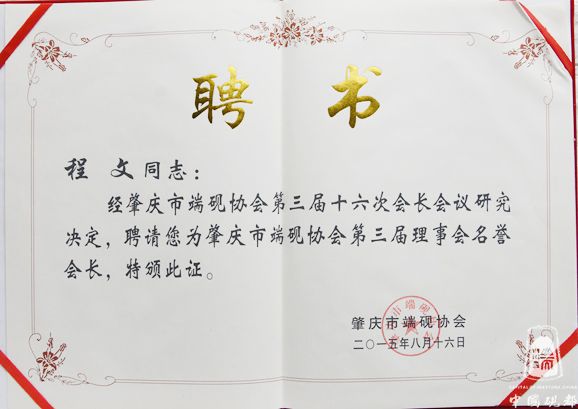 聘书
程 文同志：
经肇庆市端砚协会第三届十六次会长会议研究
决定，聘请您为肇庆市端砚协会第三届理事会名誉
会长，特颁此证。
肇庆市端砚协会
二〇一五年八月十六日
中國硯都